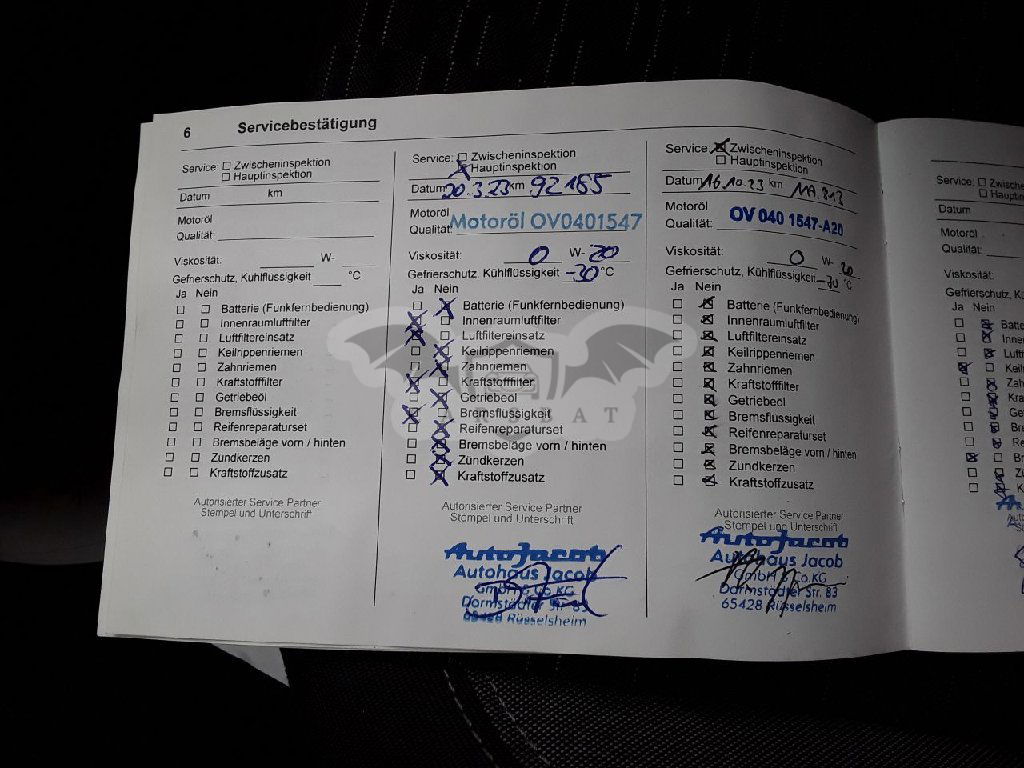 6 Servicebestätigung
Service: ☐ Zwischeninspektion
☐ Hauptinspektion
Datum km
Motoröl
Qualität:
Viskosität: W-
Gefrierschutz, Kühlflüssigkeit °C
Ja Nein
☐ ☐ Batterie (Funkfernbedienung)
☐ ☐ Innenraumluftfilter
☐ ☐ Luftfiltereinsatz
☐ ☐ Keilrippenriemen
☐ ☐ Zahnriemen
☐ ☐ Kraftstofffilter
☐ ☐ Getriebeöl
☐ ☐ Bremsflüssigkeit
☐ ☐ Reifenreparaturset
☐ ☐ Bremsbeläge vorn / hinten
☐ ☐ Zündkerzen
☐ ☐ Kraftstoffzusatz
Autorisierter Service Partner
Stempel und Unterschrift
Service: ☐ Zwischeninspektion
☒ Hauptinspektion
Datum 20.3.23 km 92185
Motoröl
Qualität: Motoröl OV0401547
Viskosität: 0 W- 20
Gefrierschutz, Kühlflüssigkeit -30 °C
Ja Nein
☐ ☒ Batterie (Funkfernbedienung)
☒ ☐ Innenraumluftfilter
☒ ☐ Luftfiltereinsatz
☐ ☒ Keilrippenriemen
☐ ☒ Zahnriemen
☒ ☐ Kraftstofffilter
☐ ☒ Getriebeöl
☒ ☐ Bremsflüssigkeit
☐ ☒ Reifenreparaturset
☐ ☒ Bremsbeläge vorn / hinten
☐ ☒ Zündkerzen
☐ ☒ Kraftstoffzusatz
Autorisierter Service Partner
Stempel und Unterschrift
AutoJacob
Autohaus Jacob
GmbH & Co.KG
Darmstädter Str. 83
65428 Rüsselsheim
Service: ☒ Zwischeninspektion
☐ Hauptinspektion
Datum 16.10.23 km
Motoröl
Qualität: OV 040 1547-A20
Viskosität: 0 W- 20
Gefrierschutz, Kühlflüssigkeit °C
Ja Nein
☐ ☒ Batterie (Funkfernbedienung)
☐ ☒ Innenraumluftfilter
☐ ☒ Luftfiltereinsatz
☐ ☒ Keilrippenriemen
☐ ☒ Zahnriemen
☐ ☒ Kraftstofffilter
☐ ☒ Getriebeöl
☐ ☒ Bremsflüssigkeit
☐ ☒ Reifenreparaturset
☐ ☒ Bremsbeläge vorn / hinten
☐ ☒ Zündkerzen
☐ ☒ Kraftstoffzusatz
Autorisierter Service Partner
Stempel und Unterschrift
AutoJacob
Autohaus Jacob
GmbH & Co.KG
Darmstädter Str. 83
65428 Rüsselsheim
Service: ☐
☐
Datum
Motoröl
Qualität:
Viskosität:
Gefrierschutz,
Ja Nein